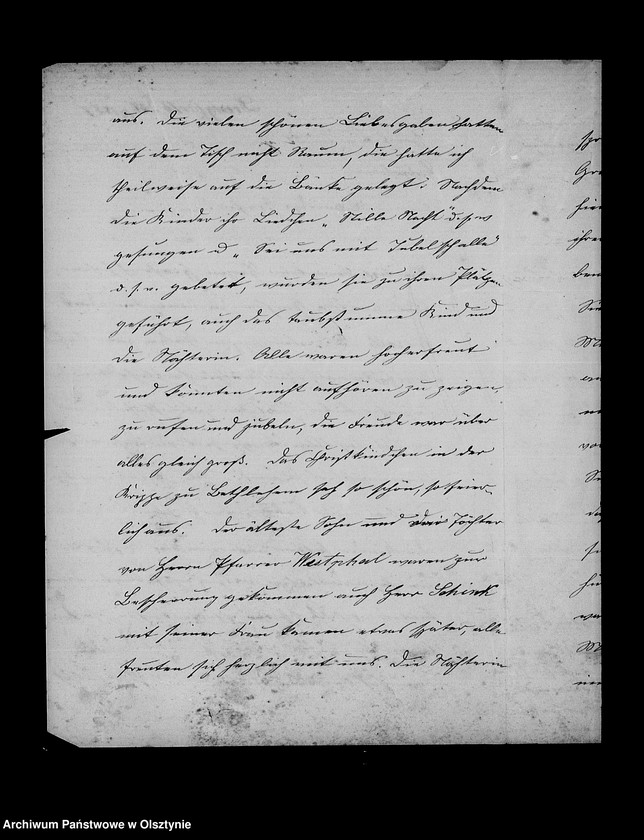 aus. Die vielen schönen Liebesgaben hatten
auf dem Tisch nicht Raum, die hatte ich
theilweise auf die Bänke gelegt. Nachdem
die Kinder ihr Liedchen „Stille Nacht" u.s.w
gesungen u „Sei uns mit Jubelschalle"
u.s.w. gebetet, wurden sie zu ihren Plätzen
geführt, auch das taubstumme Kind und
die Nähterin. Alle waren hocherfreut
und konnten nicht aufhören zu zeigen,
zu rufen und jubeln, die Freude war über
alles gleich groß. Das Christkindchen in der
Krippe zu Bethlehem sah so schön, so feier-
lich aus. Der älteste Sohn und drei Töchter
von Herrn Pfarrer Westphal waren zur
Bescheerung gekommen auch Herr Schink
mit seiner Frau kamen etwas später, alle
freuten sich herzlich mit uns. Die Nähterin
Archiwum Państwowe w Olsztynie